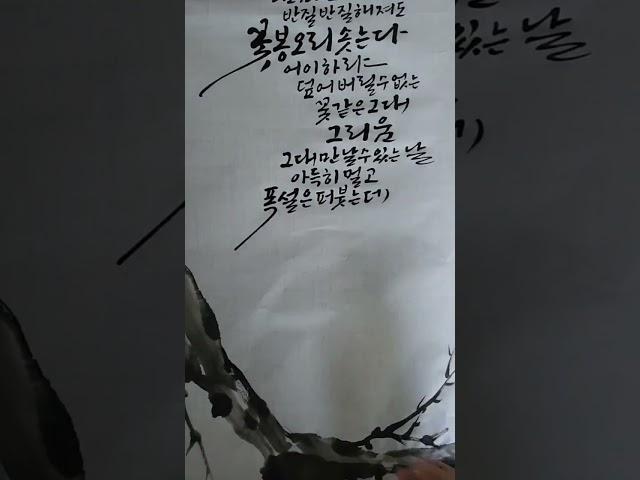 반질반질해져도
꽃봉오리 솟는다
어이하리
덮어버릴 수 없는
꽃같은 그대
그리움
그대 만날 수 있는 날
아득히 멀고
폭설은 퍼붓는데